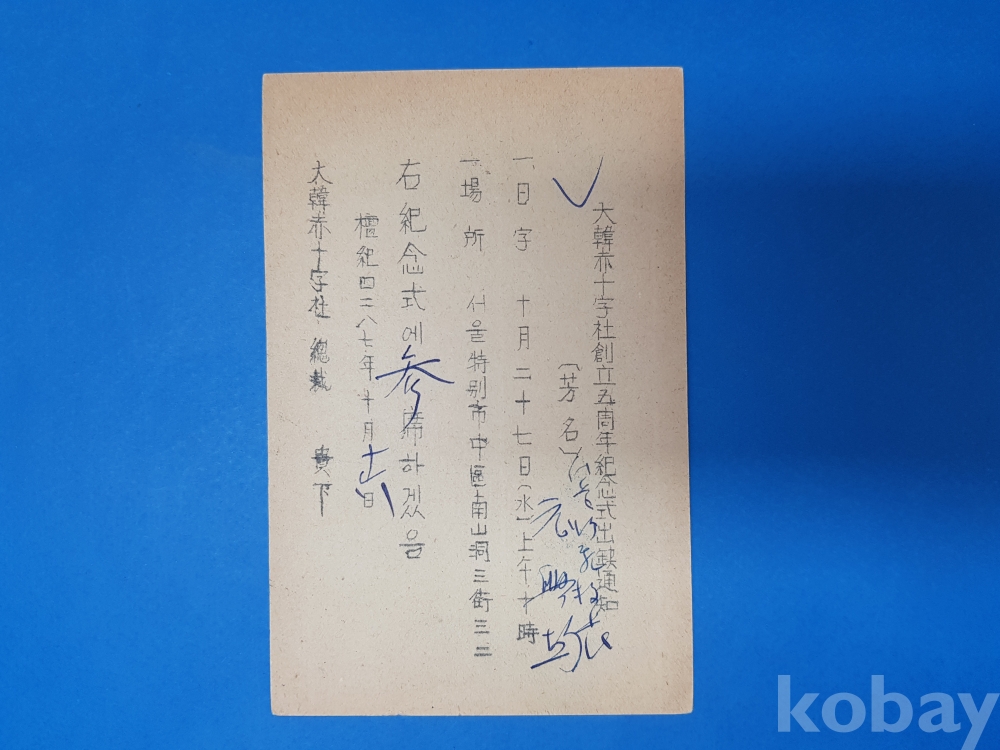 大韓赤十字社創立五周年紀念式出缺通知
(芳名)
一、日字 十月二十七日(水)上午十時
一、場所 서울特別市中區南山洞三街三二
右紀念式에 参席하겠음
檀紀四二八七年十月 日
大韓赤十字社 總裁 貴下
kobay